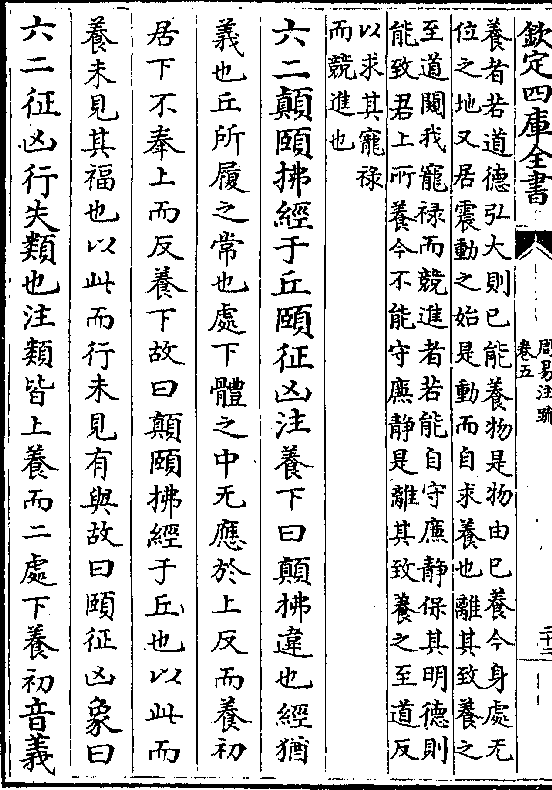 欽定四庫全書
周易注疏
卷五
養者若道德弘大則已能養物是物由已養今身處无
位之地又居震動之始是動而自求養也離其致養之
至道闚我寵禄而競進者若能自守廉静保其明德則
能致君上所養今不能守廉静是離其致養之至道反
以求其寵禄
而競進也
六二顛頤拂經于丘頤征凶注養下曰顛拂違也經猶
義也丘所履之常也處下體之中无應於上反而養初
居下不奉上而反養下故曰顛頤拂經于丘也以此而
養未見其福也以此而行未見有與故曰頤征凶象曰
六二征凶行失類也注類皆上養而二處下養初音義